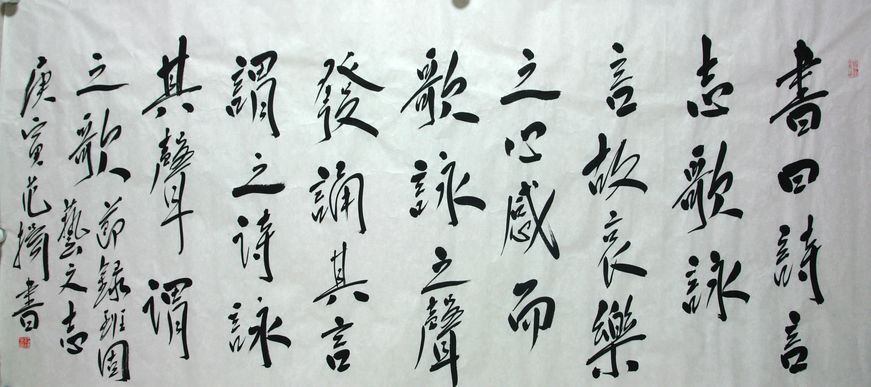 書曰詩言
志歌詠
言故哀樂
之心感而
歌詠之聲
發誦其言
謂之詩詠
其聲謂
之歌
節錄班固
藝文志
庚寅范書